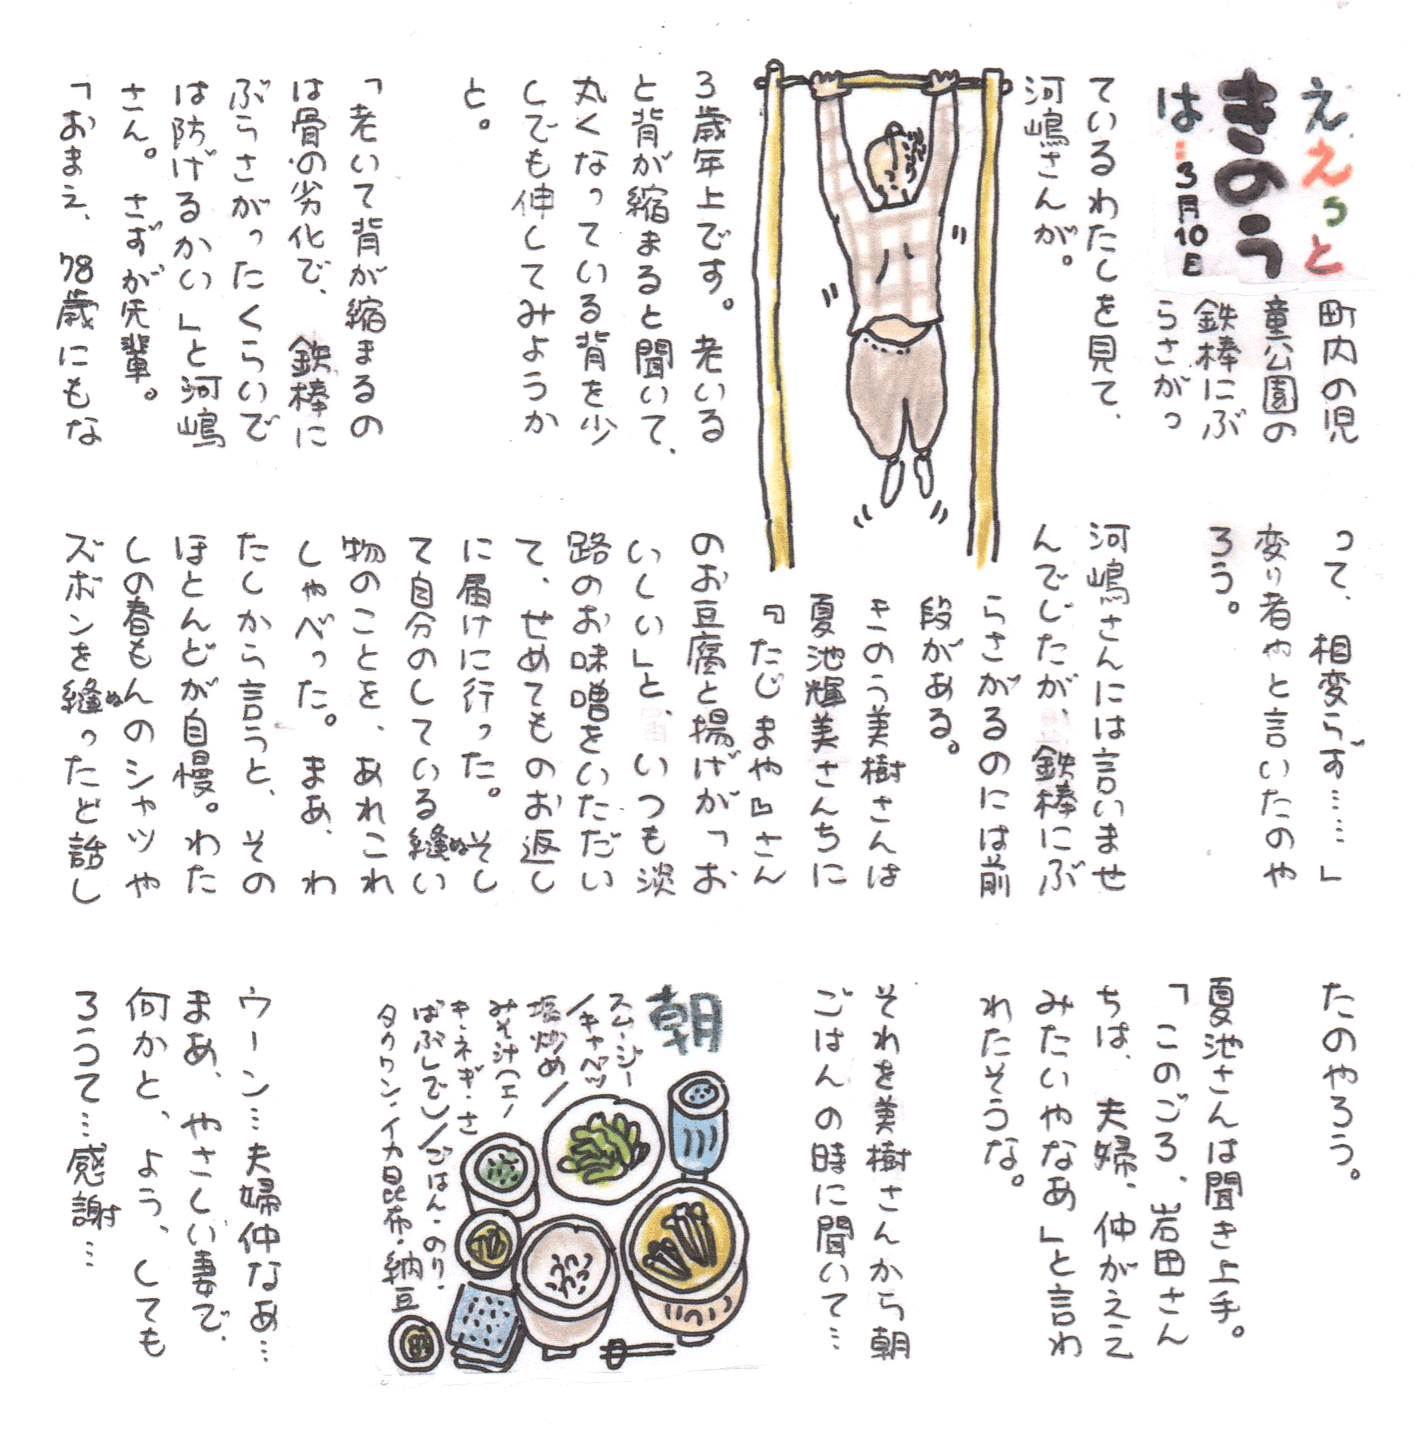 ええっと
きのう
は…3月10日
町内の児
童公園の
鉄棒にぶ
らさがっ
ているわたしを見て、
河嶋さんが。
3歳年上です。老いる
と背が縮まると聞いて、
丸くなっている背を少
しでも伸してみようか
と。
「老いて背が縮まるの
は骨の劣化で、鉄棒に
ぶらさがったくらいで
は防げるかい」と河嶋
さん。さずが先輩。
「おまえ、78歳にもな
って、相変らず……」
変り者やと言いたのや
ろう。
河嶋さんには言いませ
んでじたが、鉄棒にぶ
らさがるのには前
段がある。
きのう美樹さんは
夏池輝美さんちに
『たじまや』さん
のお豆腐と揚げが「お
いしい」と、いつも淡
路のお味噌をいただい
て、せめてものお返し
に届けに行った。そし
て自分のしている縫ぬい
物のことを、あれこれ
しゃべった。まあ、わ
たしから言うと、その
ほとんどが自慢。わた
しの春もんのシャツや
ズボンを縫ぬったと話し
たのやろう。
夏池さんは聞き上手。
「このごろ、岩田さん
ちは、夫婦、仲がええ
みたいやなあ」と言わ
れたそうな。
それを美樹さんから朝
ごはんの時に聞いて…
朝
スムージー
／キャベツ
塩炒め／
みそ汁（エノ
キ・ネギ・さ
ばぶし）／ごはん・のり・
タクワン・イカ昆布・納豆
ウーン…夫婦仲なあ…
まあ、やさしい妻で、
何かと、よう、しても
ろうて…感謝…